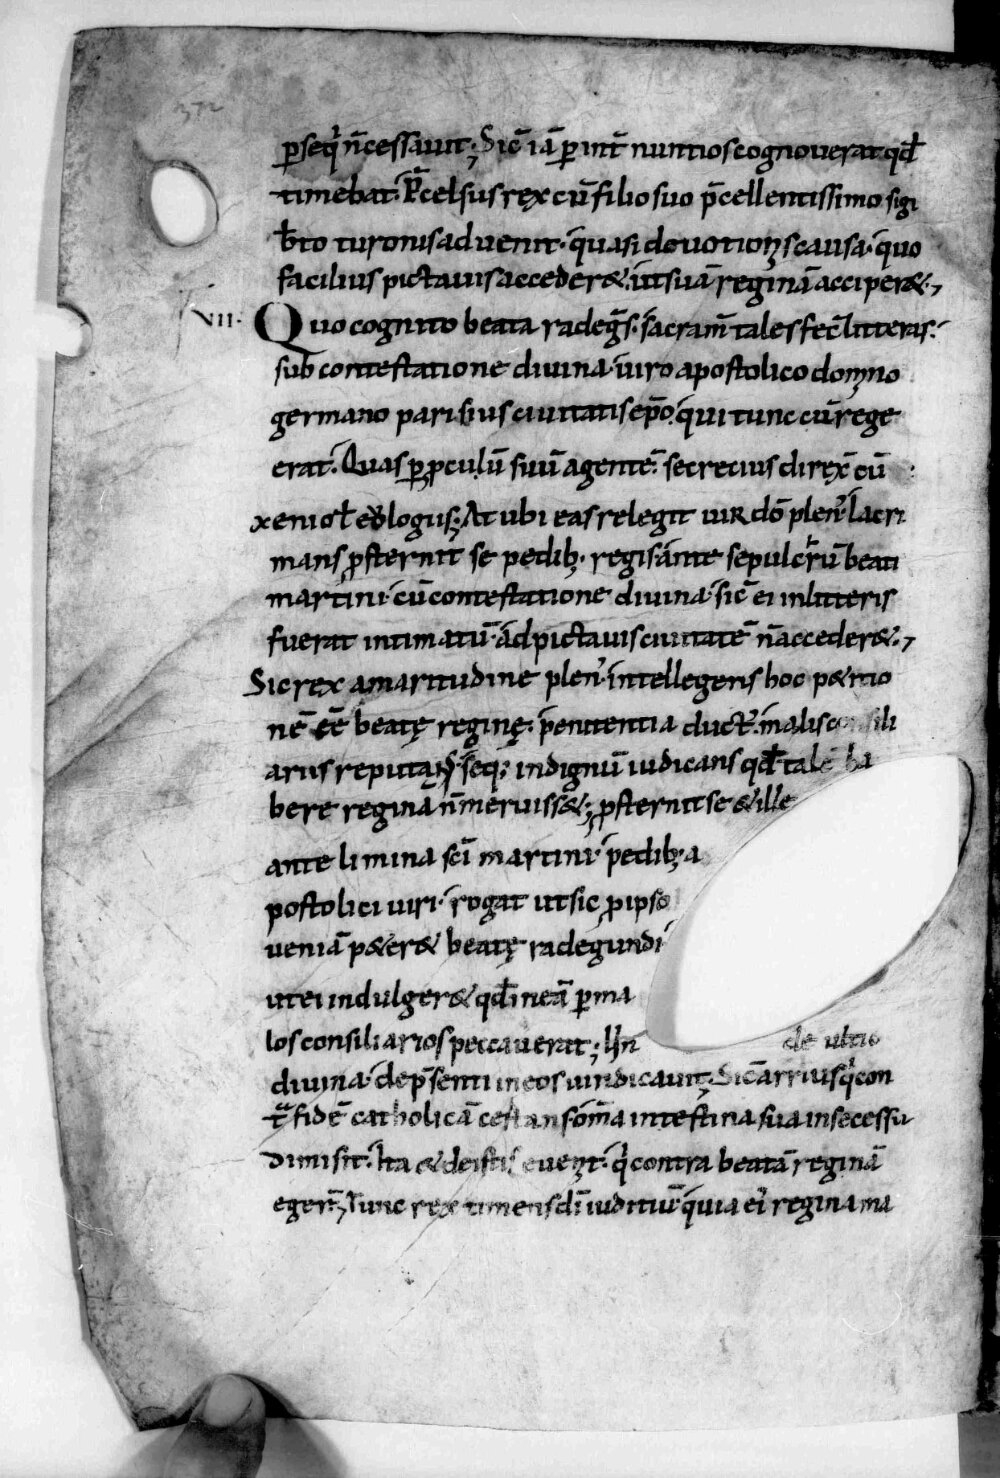 ꝑseq̇ n̄ cessauit; Sic̄ iā ꝑ int̄ nuntios cognouerat qd̄
timebat. P̄celsus rex cū filio suo p̄cellentissimo sigi
b̄to turonis aduenit· quasi deuotionis causa· quo
facilius pictauis accederet. ut suā reginā acciperet·,
VII· Quo cognito beata radeḡs· sacram̄tales fec̄ litteras·
sub contestatione diuina· uiro apostolico domno
germano parisius ciuitatis ep̄o· qui tunc cū rege
erat. Quas ꝑ ꝓculū suū agentē· secretius direx̄ cū
xenio ł eulogiis; At ubi eas relegit uir dō plen᾽· lacri
mans ꝓsternit se pedib; regis ante sepulcrū beati
martini· cū contestatione diuina· sic̄ ei in litteris
fuerat intimatū· ad pictauis ciuitatē n̄ accederet·,
Sic rex amaritudine plen᾽· intellegens hoc petitio
nē ēē beatę reginę· penitentia duct᾽· malis consili
ariis reputans
bere reginā n̄ meruisset; ꝓsternit se et ille
ante limina sc̄i martini· pedib; a
postolici uiri· rogat ut sic ꝓ ipso
ueniā peteret beatę radegundi
ut ei indulgeret qd̄ in eā ꝑ ma
los consiliarios peccauerat; de ultio
diuina· de p̄senti in eos uindicauit; Sic̄ arrius q̇ con
t̄ fidē catholicā intestina sua in secessu
dimisit. Ita et de istis euenit· q̇ contra beatā reginā
egert̄; Tunc rex timens dī iuditiū· quia ei᾽ regina ma